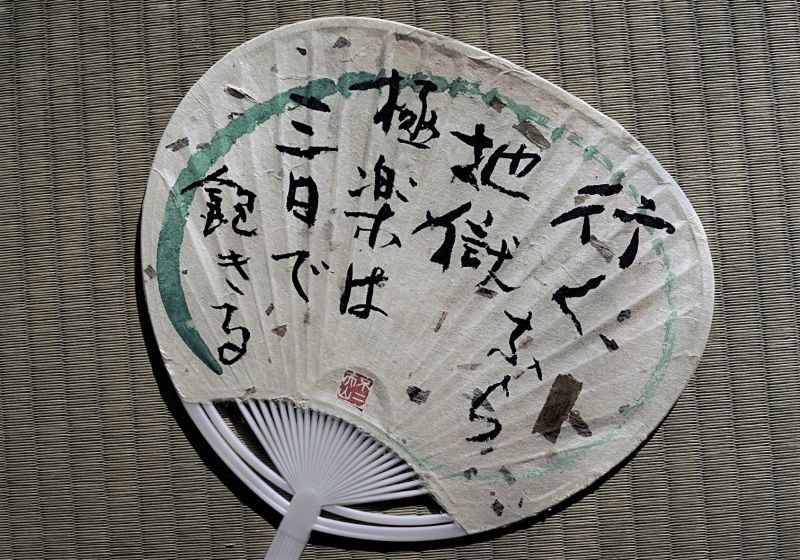 行くなら
地獄
極楽は
三日で
飽きる